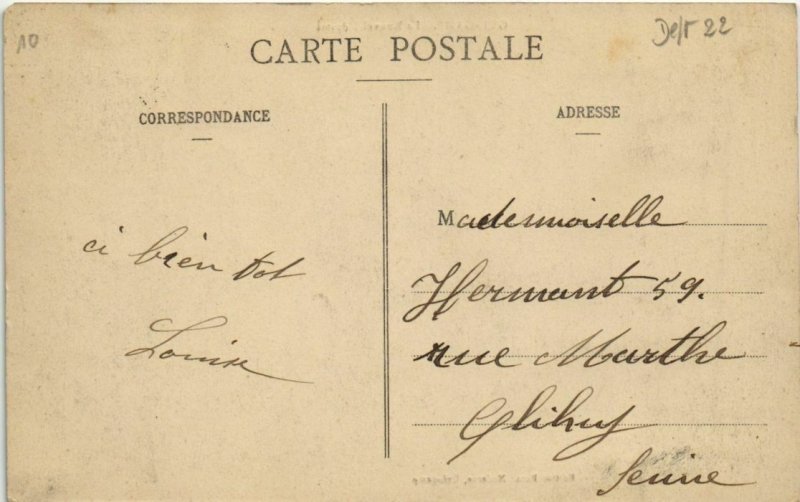 10
CARTE POSTALE
Dépt 22
CORRESPONDANCE
ADRESSE
a bien tot
Louise
Mademoiselle
Hermant 59.
rue Marthe
Clihuy
Seine